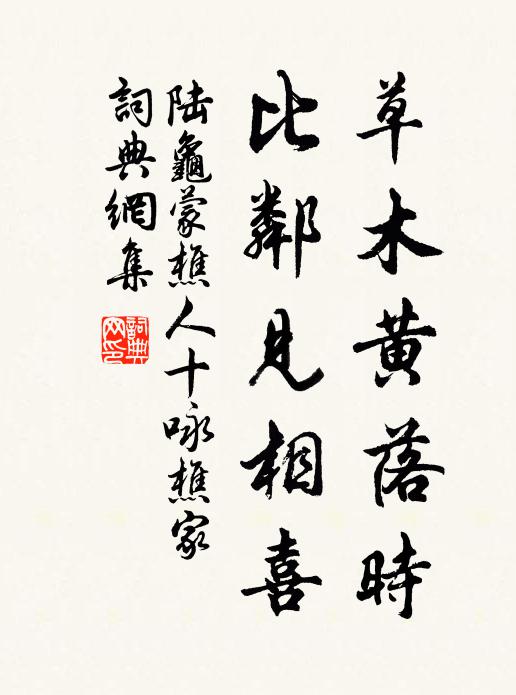 草木黄落時
比鄰見相喜
陆龜蒙樵人十咏樵家
詞典網集
詞典网印